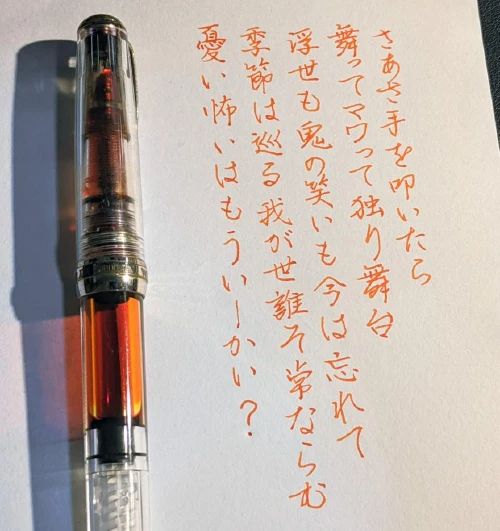 さあさ手を叩いたら
舞ってマワって独り舞台
浮世も鬼の笑いも今は忘れて
季節は巡る我が世誰そ常ならむ
憂い怖いはもういーかい？